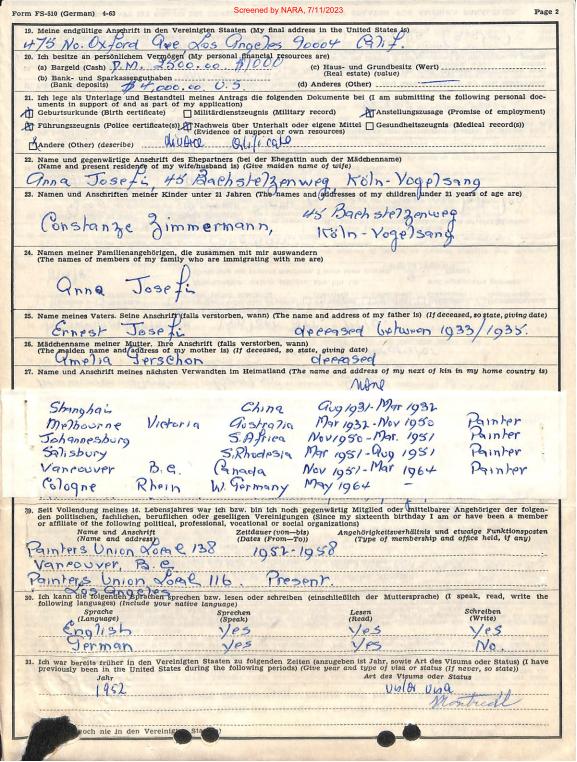 Screened by NARA, 7/11/2023
Form FS-510 (German) 4-63 Page 2
19. Meine endgültige Anschrift in den Vereinigten Staaten (My final address in the United States is)
475 No. Oxford Ave, Los Angeles 90004 Calif.
20. Ich besitze an persönlichen Vermögen (My personal financial resources are)
(a) Bargeld (Cash) D.M. 2500.00 $1000 (c) Haus- und Grundbesitz (Wert)
(Real estate) (value)
(b) Bank- und Sparkassenguthaben
(Bank deposits) $4,000.00 U.S. (d) Anderes (Other)
21. Ich lege als Unterlage und Bestandteil meines Antrags die folgenden Dokumente bei (I am submitting the following personal doc-
uments in support of and as part of my application)
Geburtsurkunde (Birth certificate) Militärdienstzeugnis (Military record) Anstellungszusage (Promise of employment)
Führungszeugnis (Police certificate(s)) Nachweis über Unterhalt oder eigene Mittel Gesundheitszeugnis (Medical record(s))
(Evidence of support or own resources)
Andere (Other) (describe) divorce certificate
22. Name und gegenwärtige Anschrift des Ehepartners (bei der Ehegattin auch der Mädchenname)
(Name and present residence of my wife/husband is) (Give maiden name of wife)
Anna Josefi, 45 Bachstelzenweg Köln-Vogelsang
23. Namen und Anschriften meiner Kinder unter 21 Jahren (The names and addresses of my children under 21 years of age are)
Constanze Zimmermann, 45 Bachstelzenweg
Köln-Vogelsang
24. Namen meiner Familienangehörigen, die zusammen mit mir auswandern
(The names of members of my family who are immigrating with me are)
Anna Josefi
25. Name meines Vaters. Seine Anschrift (falls verstorben, wann) (The name and address of my father is) (If deceased, so state, giving date)
Ernest Josefi deceased between 1933/1935.
26. Mädchenname meiner Mutter. Ihre Anschrift (falls verstorben, wann)
(The maiden name and address of my mother is) (If deceased, so state, giving date)
Amelia Gerschon deceased
27. Name und Anschrift meines nächsten Verwandten im Heimatland (The name and address of my next of kin in my home country is)
none
Shanghai China Aug 1931-Mar. 1932
Melbourne Victoria Australia Mar 1932-Nov 1950 Painter
Johannesburg S.Africa Nov 1950-Mar. 1951 Painter
Salisbury S.Rhodesia Mar 1951-Aug 1951 Painter
Vancouver B.C. Canada Nov 1951-Mar 1964 Painter
Cologne Rhein W. Germany May 1964 -
Seit Vollendung meines 16. Lebensjahres war ich bzw. bin ich noch gegenwärtig Mitglied oder mittelbarer Angehöriger der folgen-
den politischen, fachlichen, beruflichen oder geselligen Vereinigungen (Since my sixteenth birthday I am or have been a member
or affiliate of the following political, professional, vocational or social organizations)
Name und Anschrift Zeitdauer (von—bis) Angehörigkeitsverhältnis und etwaige Funktionsposten
(Name and address) (Dates (From—To)) (Type of membership and office held, if any)
Painters Union Local 138 1952-1958
Vancouver, B.C
Painters Union Local 116. Present.
Los Angeles
Ich kann die folgenden Sprachen sprechen bzw. lesen oder schreiben (einschließlich der Muttersprache) (I speak, read, write the
following languages) (Include your native language)
Sprache Sprechen Lesen Schreiben
(Language) (Speak) (Read) (Write)
English Yes Yes Yes
German Yes Yes No.
31. Ich war bereits früher in den Vereinigten Staaten zu folgenden Zeiten (anzugeben ist Jahr, sowie Art des Visums oder Status) (I have
previously been in the United States during the following periods) (Give year and type of visa or status (If never, so state))
Jahr Art des Visums oder Status
1952 visitor visa
Montreal
noch nie in den Vereinigten Staaten